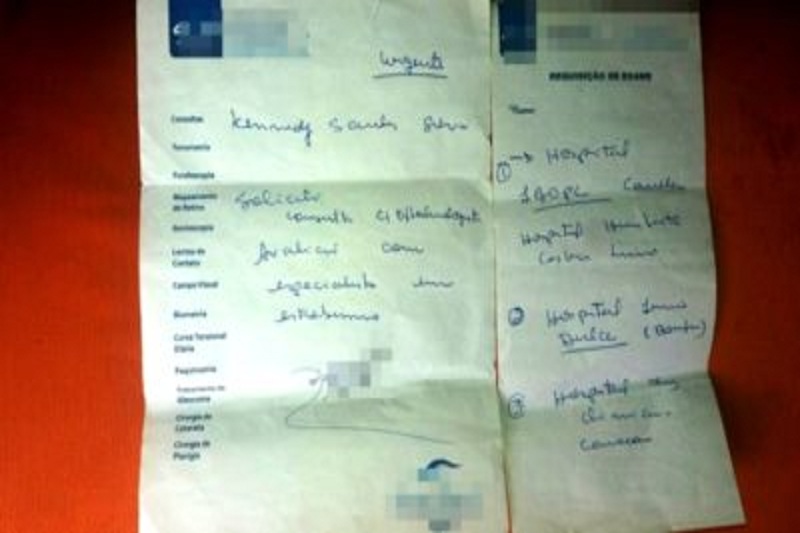 Urgente
Consultas
Kennedy Santos
Tonometria
Mapeamento
de Retina
Solicito
consulta c/ Oftalmologista
Gonioscopia
Lentes de
Contato
Avaliação com
Campo Visual
especialista em
Biometria
estrabismo
Curva Tensional
Diária
Paquimetria
Tratamento de
Glaucoma
Cirurgia de
Catarata
Cirurgia de
Pterígio
REQUISIÇÃO DE EXAME
Nome:
① → Hospital
Hospital Humberto
Castro Lima
② Hospital Irmã
Dulce
③ Hospital